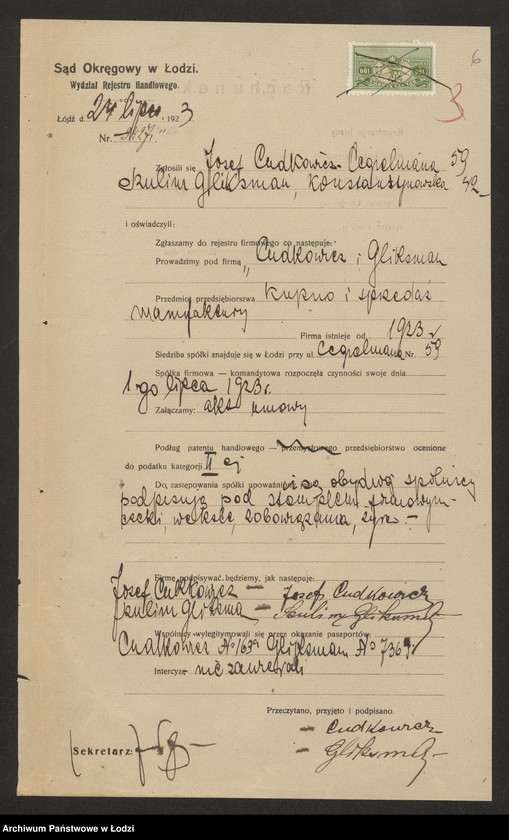 6
3
Sąd Okręgowy w Łodzi.
Wydział Rejestru Handlowego.
Łódź d. 24 lipca, 1923
Nr.
Zgłosili się Josef Cudkowicz Cegielniana 59
Szulim Gliksman, Konstantynowska 42
i oświadczyli:
Zgłaszamy do rejestru firmowego co następuje:
Prowadzimy pod firmą „Cudkowicz i Gliksman
Przedmiot przedsiębiorstwa Kupno i sprzedaż
manufaktury
Firma istnieje od 1923 r
Siedziba spółki znajduje się w Łodzi przy ul. Cegielniana Nr. 59
Spółka firmowa — komandytowa rozpoczęła czynności swoje dnia
1-go lipca 1923 r.
Załączamy: akt umowy
Podług patentu handlowego — przemysłowego przedsiębiorstwo ocenione
do podatku kategorji II ej
Do zastępowania spółki upoważnieni są obydwaj spólnicy
podpisują pod stemplem firmowym
czeki, weksle, zobowiązania, żyra —
Firmę podpisywać będziemy, jak następuje:
Josef Cudkowicz — Josef Cudkowicz
Szulim Gliksman — Szulim Gliksman
Wspólnicy wylegitymowali się przez okazanie paszportów:
Cudkowicz No Gliksman No
Intercyz nie zawierali
Przeczytano, przyjęto i podpisano.
— Cudkowicz
— Gliksman
Sekretarz:
Archiwum Państwowe w Łodzi